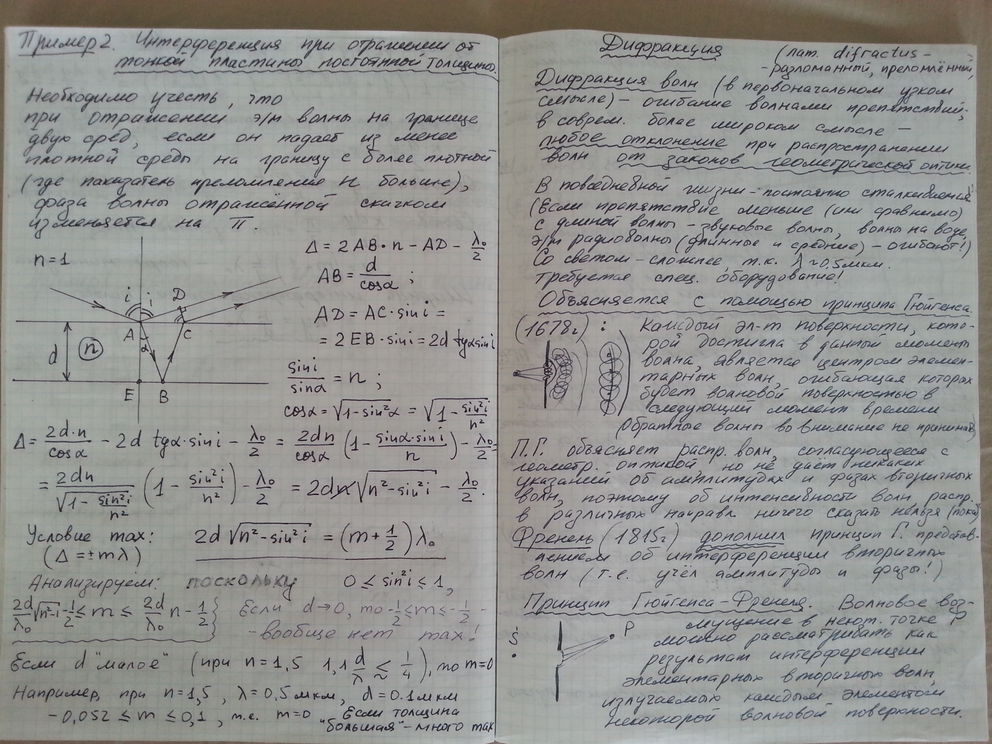 Пример 2. Интерференция при отражении от
тонкой пластины постоянной толщины.
Необходимо учесть, что
при отражении э/м волны на границе
двух сред, если он падает из менее
плотной среды на границу с более плотной
(где показатель преломления n больше),
фаза волны отраженной скачком
изменяется на π.
n=1
Δ = 2AB·n − AD − λ₀/2
AB = d/cosα ;
AD = AC·sin i =
= 2EB·sin i = 2d tgα sin i
sin i/sinα = n ;
cosα = √(1−sin²α) = √(1−sin²i/n²)
i i D
A α C
d n
E B
Δ = 2d·n/cosα − 2d tgα·sin i − λ₀/2 = 2dn/cosα (1 − sinα·sin i/n) − λ₀/2 =
= 2dn/√(1−sin²i/n²) (1 − sin²i/n²) − λ₀/2 = 2d√(n²−sin²i) − λ₀/2.
Условие max: 2d√(n²−sin²i) = (m+1/2)λ₀
(Δ = ±mλ)
Анализируем: поскольку 0 ≤ sin²i ≤ 1,
2d/λ₀ √(n²−1) − 1/2 ≤ m ≤ 2d/λ₀ n − 1/2 Если d→0, то −1/2 ≤ m ≤ −1/2 −
− вообще нет max!
Если d "малое" (при n=1,5 1,1 d/λ ≲ 1/4), то m=0
Например, при n=1,5, λ=0,5мкм, d=0.1мкм
−0,052 ≤ m ≤ 0,1, т.е. m=0 Если толщина
"большая" − много max
Дифракция (лат. difractus −
− разломанный, преломлённый)
Дифракция волн (в первоначальном узком
смысле) − огибание волнами препятствий;
в соврем. более широком смысле −
любое отклонение при распространении
волн от законов геометрической оптики.
В повседневной жизни − постоянно сталкиваемся
(Если препятствие меньше (или сравнимо)
с длиной волны − звуковые волны, волны на воде,
э/м радиоволны (длинные и средние) − огибают!)
Со светом − сложнее т.к. λ ~ 0,5 мкм.
Требуется спец. оборудование!
Объясняется с помощью принципа Гюйгенса
(1678г) : Каждый эл-т поверхности, кото-
рой достигла в данный момент
волна, является центром элемен-
тарных волн, огибающая которых
будет волновой поверхностью в
следующий момент времени
(обратные волны во внимание не принимая)
П.Г. объясняет распр. волн, согласующееся с
геометр. оптикой, но не дает никаких
указаний об амплитудах и фазах вторичных
волн, поэтому об интенсивности волн, распр.
в различных направл. ничего сказать нельзя (пока)
Френель (1815г) дополнил принцип Г. представ-
лением об интерференции вторичных
волн (т.е. учёл амплитуды и фазы!)
Принцип Гюйгенса-Френеля. Волновое воз-
мущение в некот. точке P
можно рассматривать как
результат интерференции
элементарных вторичных волн,
излучаемых каждым элементом
некоторой волновой поверхности.
S P